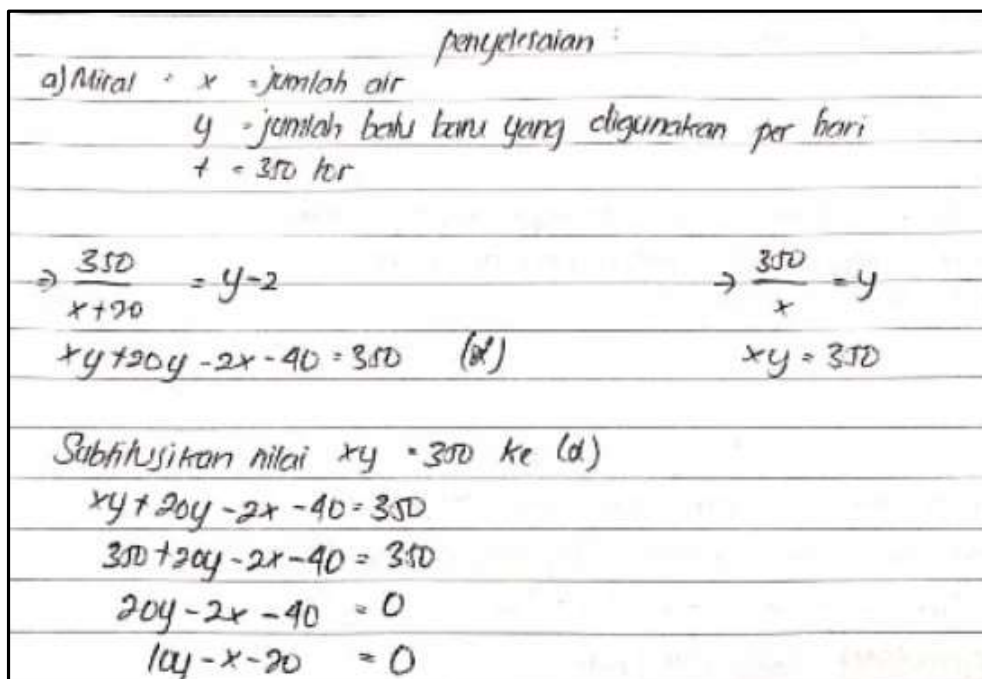 penyelesaian :
a) Misal : x = jumlah air
y = jumlah batu baru yang digunakan per hari
t = 350 ton
⇒ 350/(x+20) = y-2 → 350/x = y
xy+20y-2x-40 = 350 (α) xy = 350
Subtitusikan nilai xy = 350 ke (α)
xy+20y-2x-40 = 350
350+20y-2x-40 = 350
20y-2x-40 = 0
10y-x-20 = 0